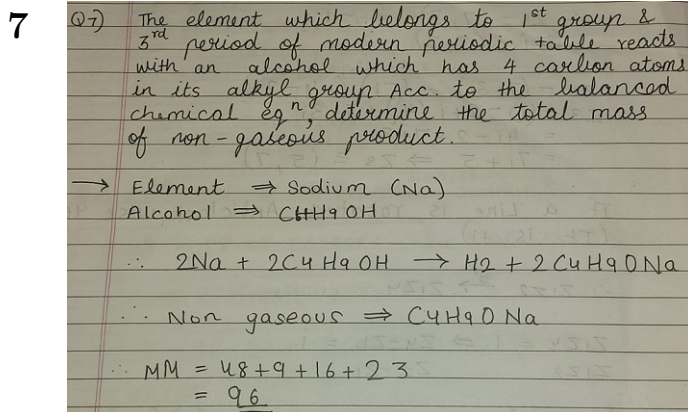 7
Q7) The element which belongs to 1st group &
3rd period of modern periodic table reacts
with an alcohol which has 4 carbon atoms
in its alkyl group Acc. to the balanced
chemical eqn, determine the total mass
of non-gaseous product.
→ Element ⇒ Sodium (Na)
Alcohol ⇒ C4H9OH
∴ 2Na + 2C4H9OH → H2 + 2C4H9ONa
∴ Non gaseous ⇒ C4H9ONa
∴ MM = 48+9+16+23
= 96